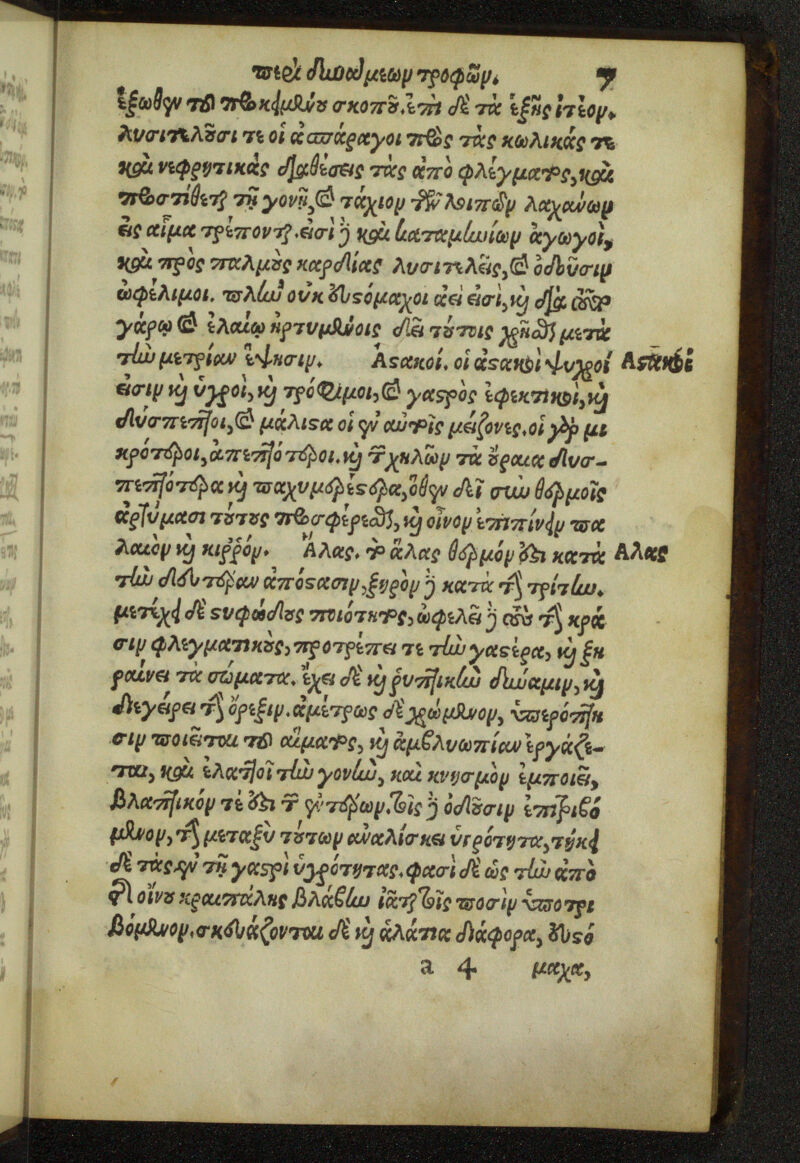 περὶ δυνάμεων τροφῶν. 7
ἔξωθεν τοῦ προκειμένου σκοποῦ. ἐπὶ δὲ τὰ ἑξῆς ἰτέον.
λυσιτελοῦσί τε οἱ ἀσπάραγοι πρὸς τὰς κωλικάς τε
καὶ νεφρητικὰς διαθέσεις τὰς ἀπὸ φλέγματος, καὶ
προστίθεται τῇ γονῇ, καὶ τάχιον τῶν λοιπῶν λαχάνων
εἰς αἷμα τρέπονται. εἰσὶ δὲ καὶ καταμηνίων ἀγωγοί,
καὶ πρὸς παλμοὺς καρδίας λυσιτελεῖς, καὶ ὀδοῦσιν
ὠφέλιμοι. πλὴν οὐκ εὐστόμαχοι ἀεί εἰσι, καὶ διὰ τοῦτο
γάρῳ καὶ ἐλαίῳ ἠρτυμένοις δεῖ τούτοις χρῆσθαι μετὰ
τὴν μετρίαν ἕψησιν. Ἀστακοί. οἱ ἀστακοὶ ψυχροί Ἀστακοί
εἰσιν καὶ ὑγροί, καὶ τρόφιμοι, καὶ γαστρὸς ἐφεκτικοί, καὶ
δύσπεπτοι, καὶ μάλιστα οἱ ἐν αὐτοῖς μείζονες. οἱ γὰρ μι
κρότεροι, ἀπεπτότεροι. καὶ τῶν χηλῶν τὰ οὐραῖα δυσ-
πεπτότερα καὶ παχυμερέστερα, ὅθεν δεῖ σὺν θερμοῖς
ἀρτύμασι τούτους προσφέρεσθαι, καὶ οἶνον ἐπιπίνειν πα
λαιὸν καὶ κιρρόν. Ἅλας. τὸ ἅλας θερμόν ἐστι κατὰ Αλας
τὴν δευτέραν ἀπόστασιν, ξηρὸν δὲ κατὰ τὴν τρίτην.
μετέχει δὲ στυφούσης ποιότητος, ὠφελεῖ δὲ τὴν κρᾶ
σιν φλεγματικούς, προτρέπει τε τὴν γαστέρα, καὶ ξη
ραίνει τὰ σώματα. ἔχει δὲ καὶ ῥυπτικὴν δύναμιν, καὶ
διεγείρει τὴν ὄρεξιν. ἀμέτρως δὲ χρώμενον, ὑπερόπτη
σιν ποιεῖται τοῦ αἵματος, καὶ ἀμβλυωπίαν ἐργάζε-
ται, καὶ ἐλαττοῖ τὴν γονήν, καὶ κνησμὸν ἐμποιεῖ,
βλαπτικόν τέ ἐστι τῶν ἐντέρων. τοῖς δὲ ὀδοῦσιν ἐπιτριβό
μενον, τὴν μεταξὺ τούτων ἀναλίσκει ὑγρότητα, τήκει
δὲ τὰς ἐν τῇ γαστρὶ ὑγρότητας. φασὶ δὲ ὡς τὴν ἀπὸ
τοῦ οἴνου κραιπάλης βλάβην ἰᾶται τοῖς ποσὶν ὑποτρι
βόμενον. σκευάζονται δὲ καὶ ἁλάτια διάφορα, εὐστό
a 4 μαχα,